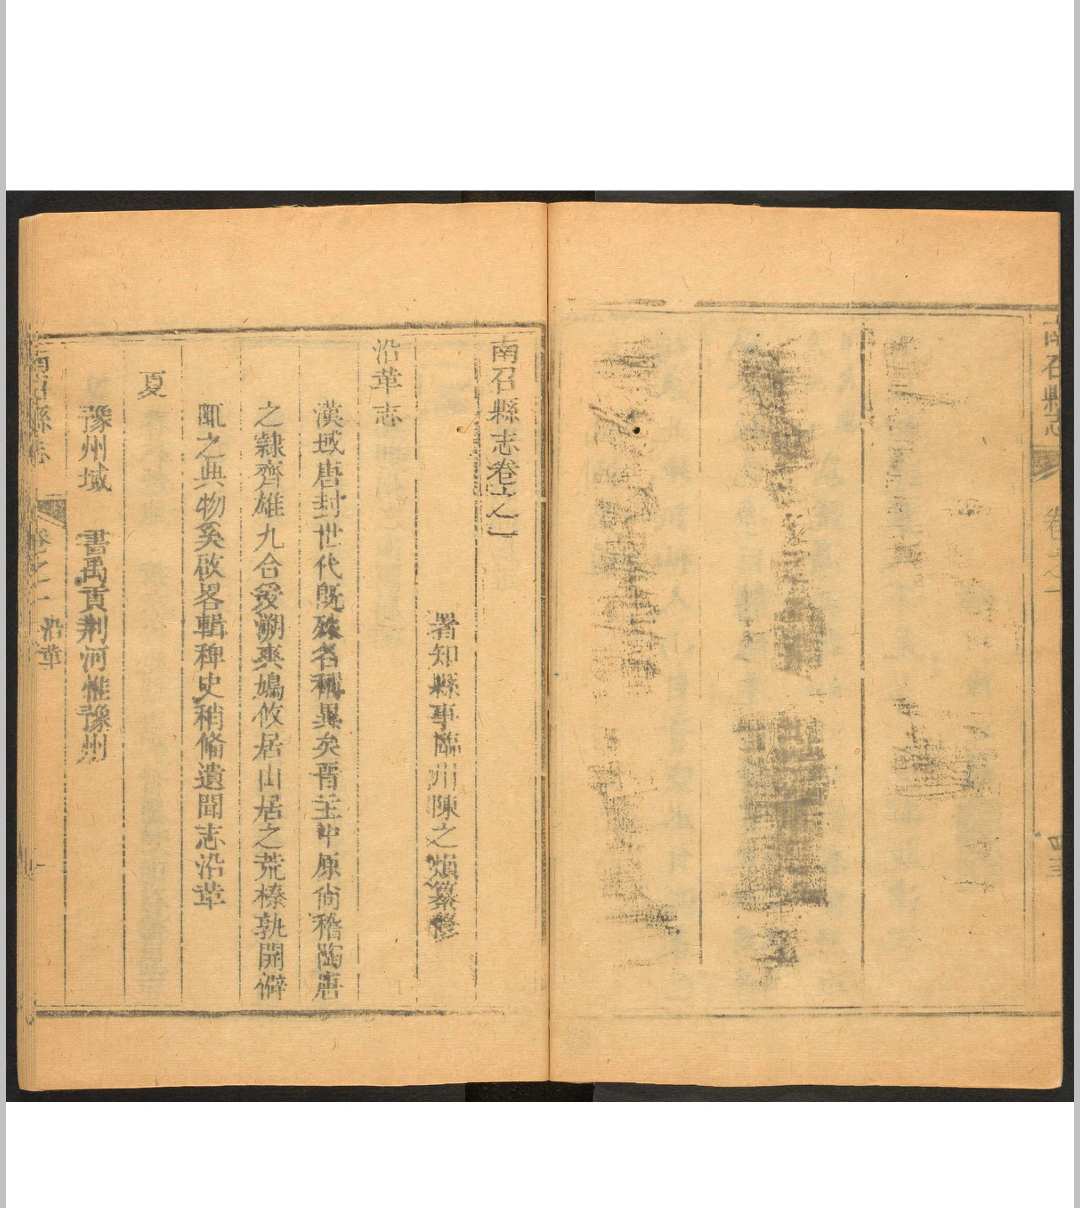 南召縣志
卷之一
南召縣志卷之一
署知縣事臨川陳之熉纂修
沿革志
漢域唐封世代既殊名稱異矣晋主中原尙稽陶唐
之隸齊雄九合爰溯爽鳩攸居山居之荒榛孰開僻
陬之典物奚啟畧輯稗史稍脩遺聞志沿革
夏
豫州域 書禹貢荆河惟豫州
南召縣志
卷之一 沿革 一